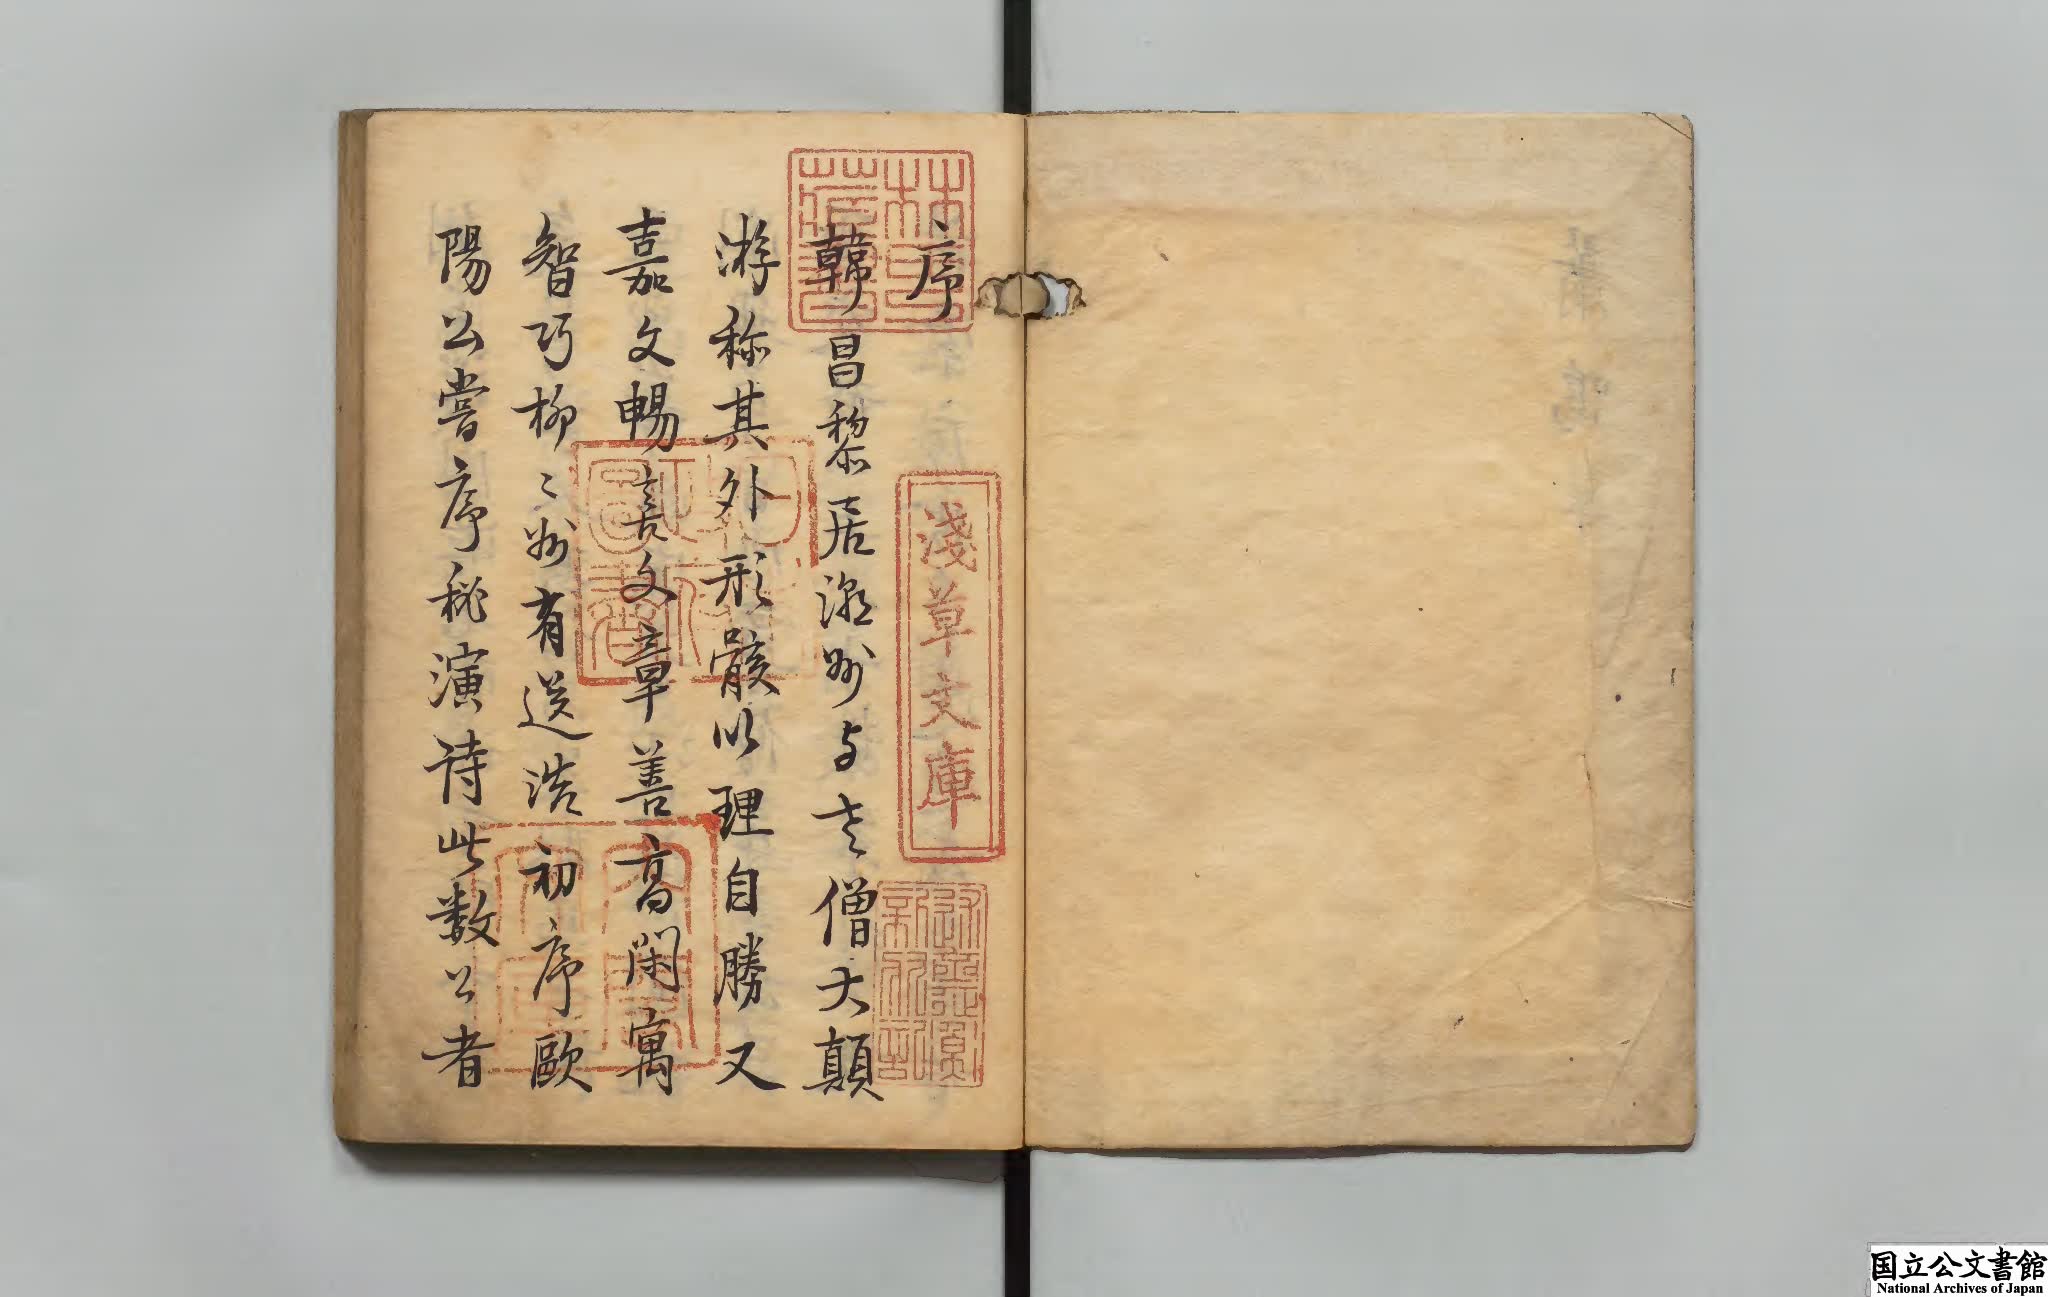 序
韓昌黎居潮州与老僧大顛
游称其外形骸以理自勝又
嘉文暢喜文章善高閑寓
智巧柳〻州有送浩初序歐
陽公嘗序秘演詩此数公者
林氏
蔵書
淺草文庫
国立公文書館
National Archives of Japan